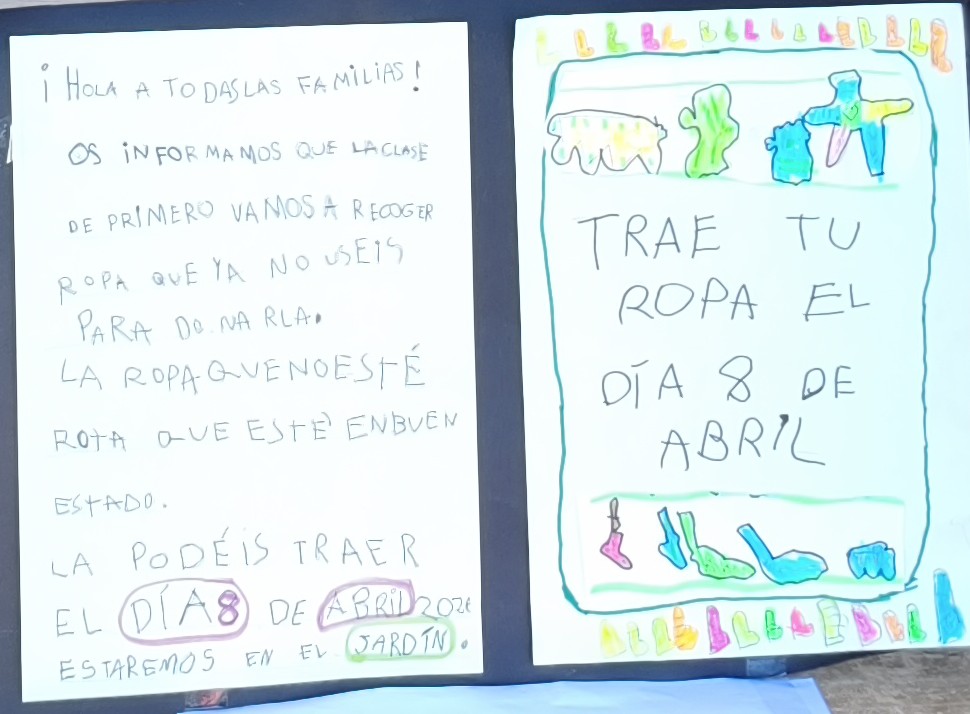 ¡HOLA A TODASLAS FAMILIAS!
OS INFORMAMOS QUE LACLASE
DE PRIMERO VAMOS A RECOGER
ROPA QUE YA NO USEIS
PARA DO NARLA.
LA ROPA QUE NO ESTÉ
ROTA QUE ESTÉ ENBUEN
ESTADO.
LA PODÉIS TRAER
EL DÍA 8 DE ABRIL 2026
ESTAREMOS EN EL JARDÍN.
TRAE TU
ROPA EL
DÍA 8 DE
ABRIL